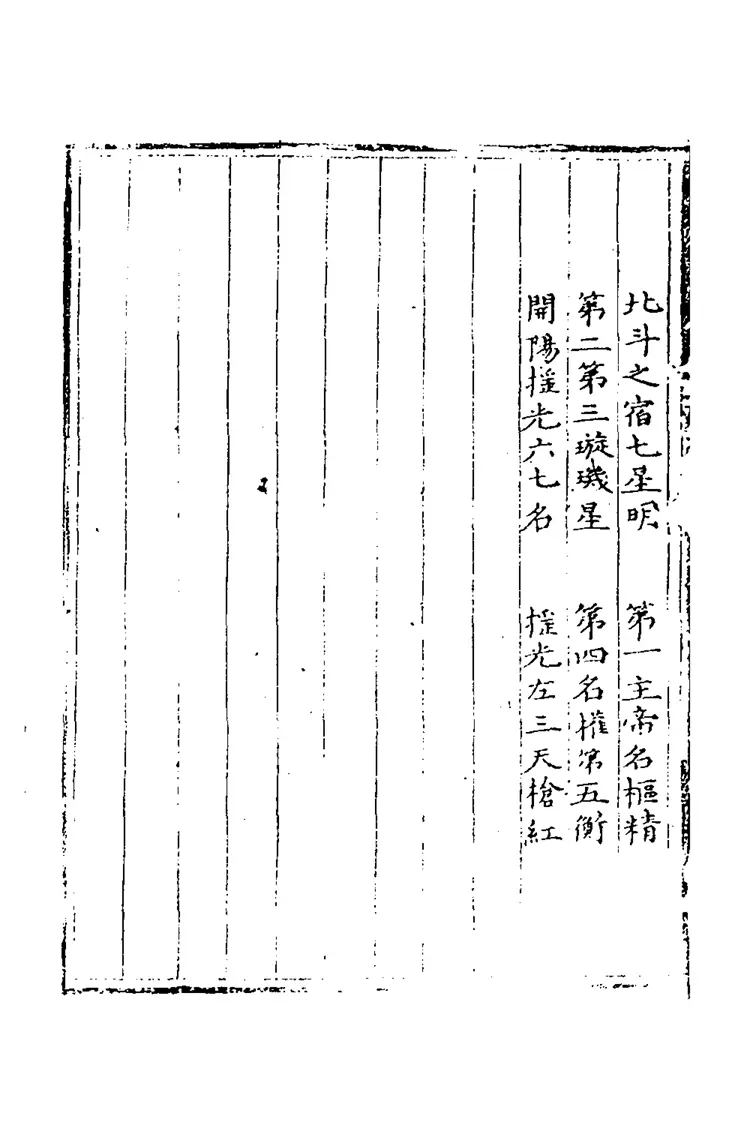 北斗之宿七星明　第一主帝名樞精
第二第三璇璣星　第四名權第五衡
開陽搖光六七名　搖光左三天槍紅